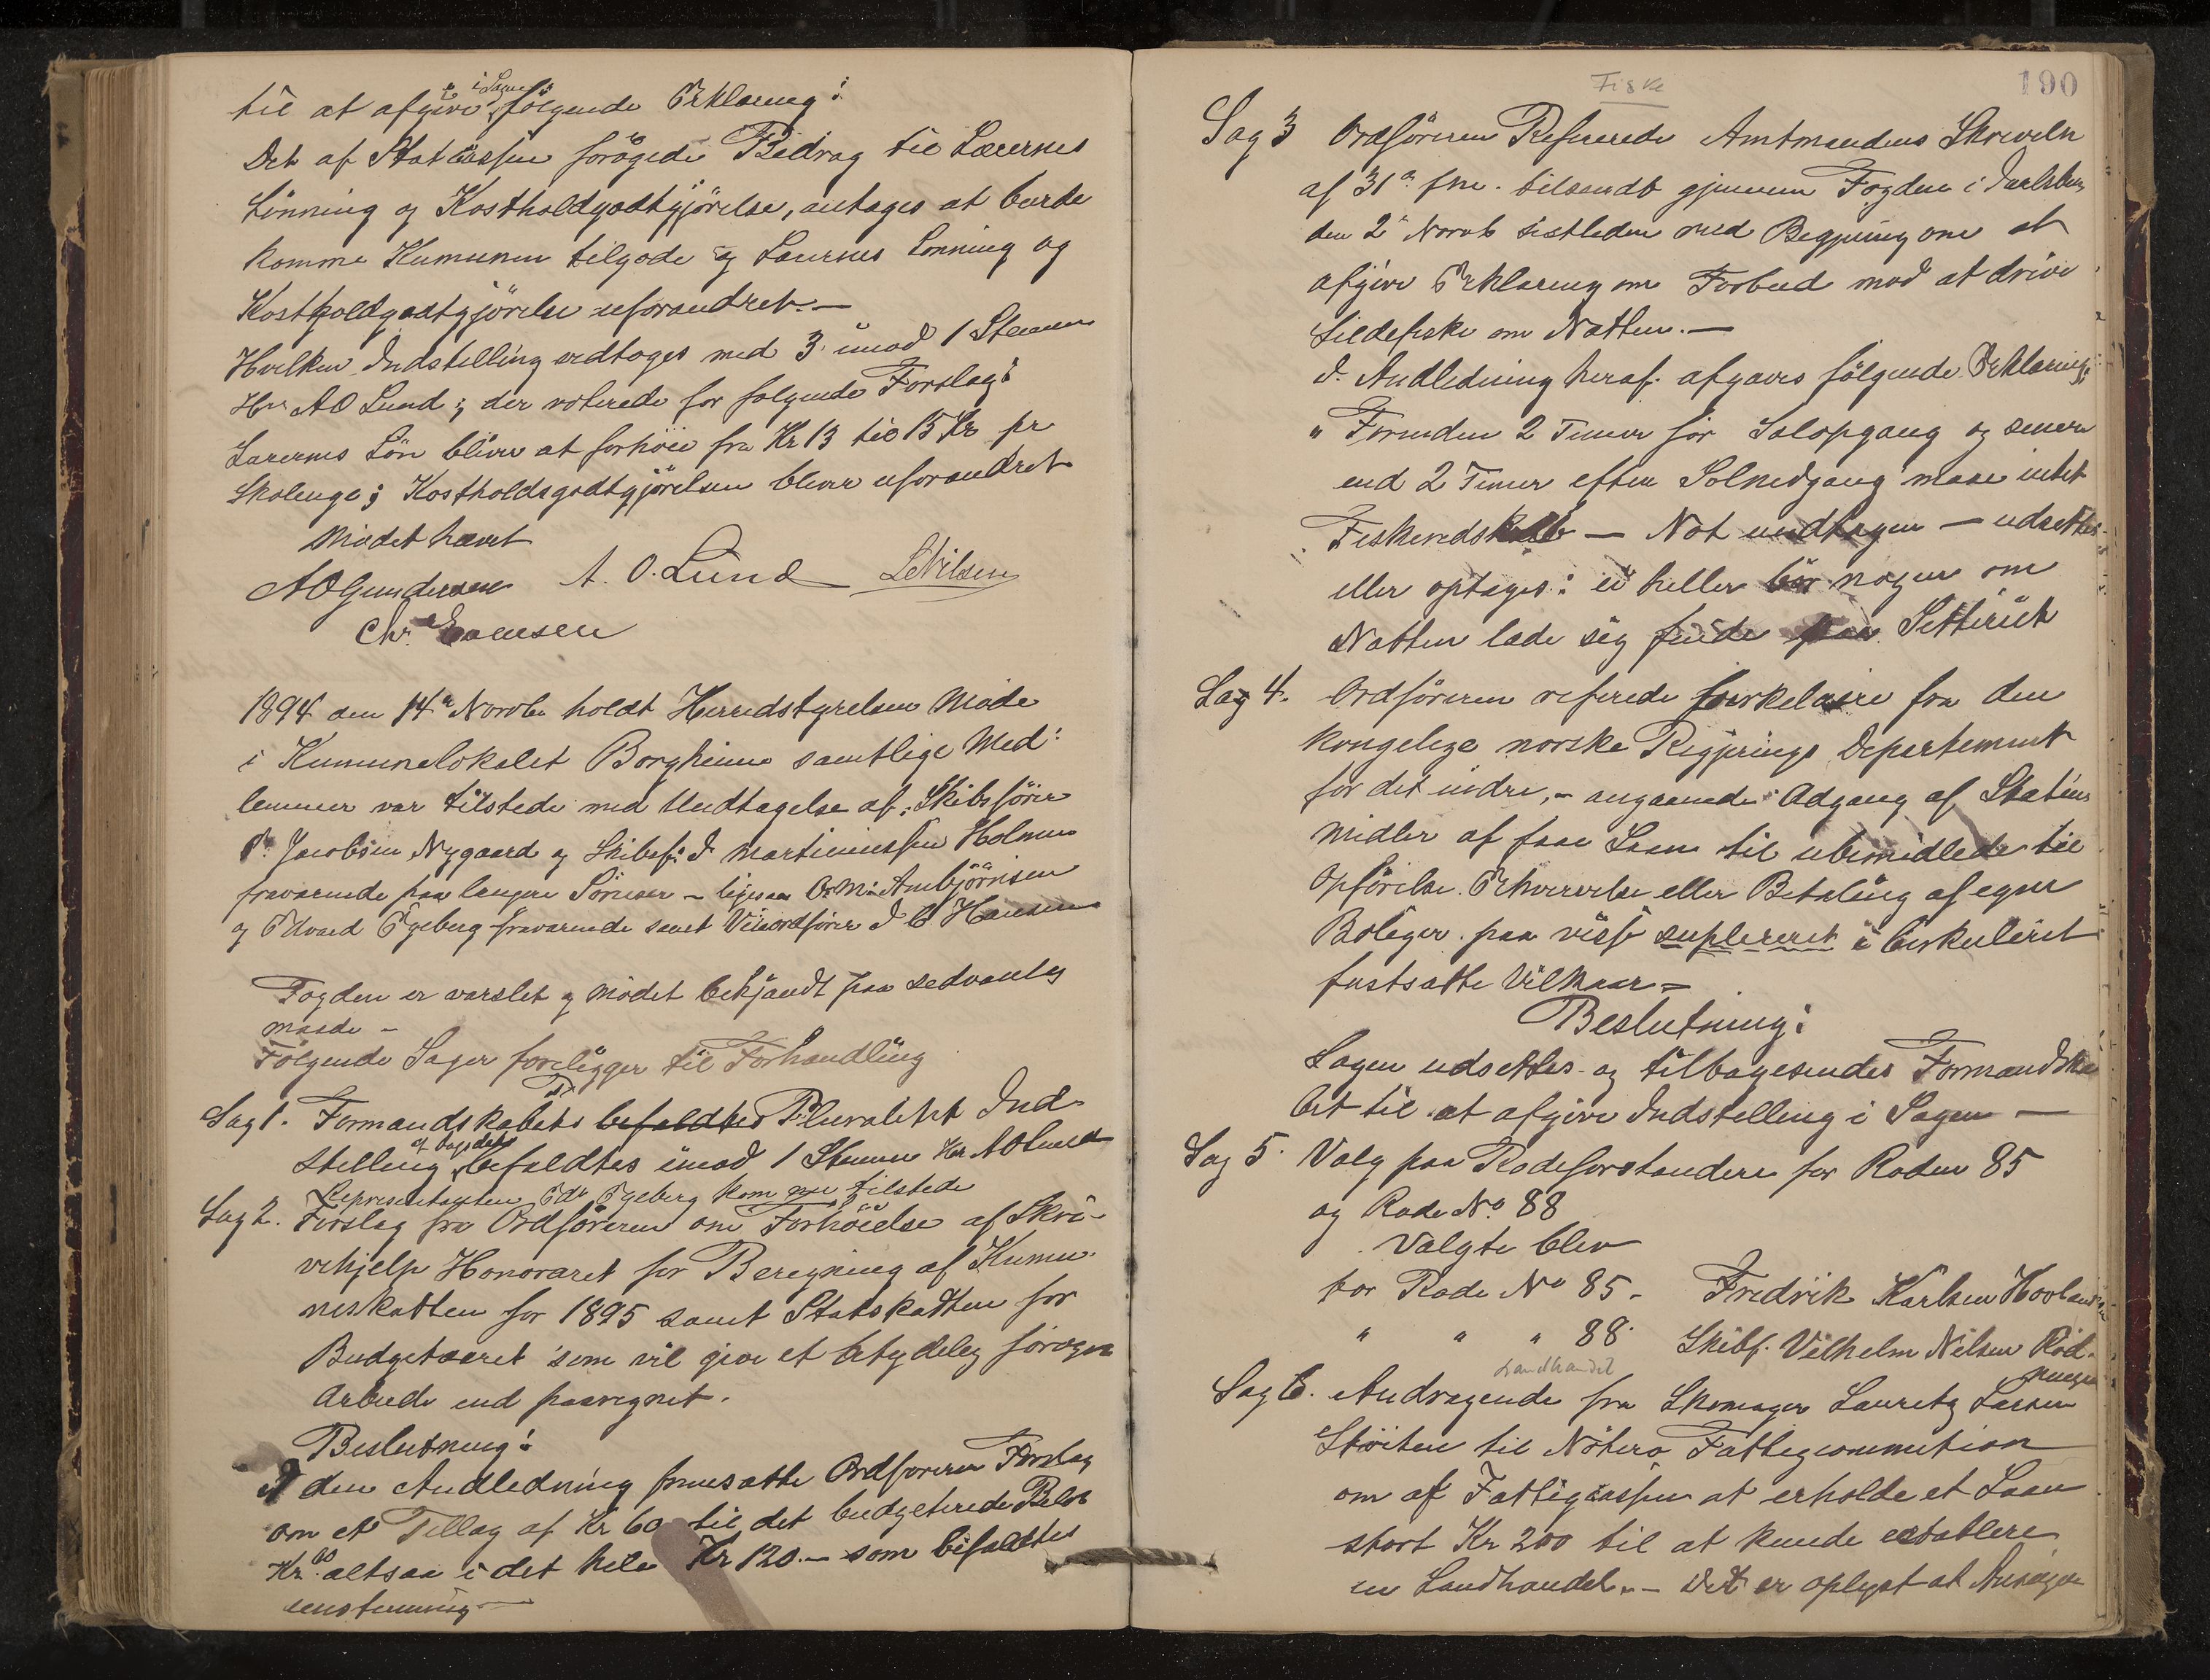 til at afgive i Sagen følgende Erklæring:
Det af Statcassen forøgede Bidrag til Lærernes
Lønning og Kostholdgodtgjørelse, antages at burde
komme Kumunen tilgode og Lærernes Lønning og
Kostholdgodtgjørelse uforandret.—
Hvilken Indstilling vedtoges med 3 imod 1 Stemme
Hr A O Lund; der voterede for følgende Forslag:
Lærernes Løn bliver at forhøie fra Kr 13 til 15 Kr pr
Skoleuge; Kostholdsgodtgjørelsen bliver uforandret
Mødet hævet
A O Gundersen A. O. Lund L Nilsen
Chr.
1894 den 14de Novbr holdt Herredstyrelsen Møde
i Kumunelokalet Borgheim samtlige Med-
lemmer var tilstede med Undtagelse af: Skibsfører
Jacobsen Nygaard og Skibsf: J Martiniussen Holmen
fraværende paa længere Sørieser - ligesaa O. M. Ambjørnsen
og Edvard Egeberg fraværende samt Viceordfører J C Hansen
Fogden er varslet og Mødet bekjandt paa sedvanlig
maade -
Følgende Sager foreligger til Forhandling
Sag 1. Formandskabets befaldtes Pluralitet Ind-
stilling befaldtes imod 1 Stemme Hr A O Lund
Representanten Edv Egeberg kom nu tilstede
Sag 2. Forslag fra Ordføreren om Forhøielse af Skri-
vehjelp Honoraret for Beregning af Kumu
neskatten for 1895 samt Statskatten for
Budgetaaret som vil give et betydelig forøgn
Arbeide end paaregnet.
Beslutning:
I den Andledning fremsatte Ordføreren Forslag
om et Tillæg af Kr 60 til det budgeterede Beløb
Kr 60 altsaa i det hele Kr 120.— som bifaldtes
enstemmig—
190
Fiske
Sag 3 Ordføreren Refererede Amtmandens Skrivelse
af 31te f.m. tilsendt gjennem Fogden i Jarlsberg
den 2de Novb sistleden med Begjæring om at
afgive Erklæring om Forbud mod at drive
Sildefiske om Natten.—
I Andledning heraf afgaves følgende Erklæring:
" Forinden 2 Timer før Solopgang og senere
end 2 Timer efter Solnedgang maae intet
Fiskeredskab — Not undtagen — udsettes
eller optages: ei heller bør nogen om
Natten lade sig finde paa
Sag 4. Ordføreren referede Cirkelaire fra den
kongelige norske Regjerings Departement
for det indre,- angaaende Adgang af Statens
Midler af faae Laan til ubemidlede til
Opførelse. Erhvervelse eller Betaling af egne
Boliger paa visse i Cirkuleret
fastsatte Vilkaar =
Beslutning:
Sagen udsettes og tilbagesendes Formandska
bet til at afgive Indstilling i Sagen —
Sag 5. Valg paa Rodeforstandere for Roden 85
og Rode No. 88
Valgte blev
for Rode No 85. Fredrik Karlsen
" " " 88. Skibf. Vilhelm Nilsen Rød-
Landhandel
Sag 6. Andragende fra Skomager Lauritz Larsen
Støiten til Nøtterø Fattigcommition
om af Fattigcassen at erholde et Laan
stort Kr 200 til at kunde establere
en Landhandel.- Det er oplyst at Ansøger